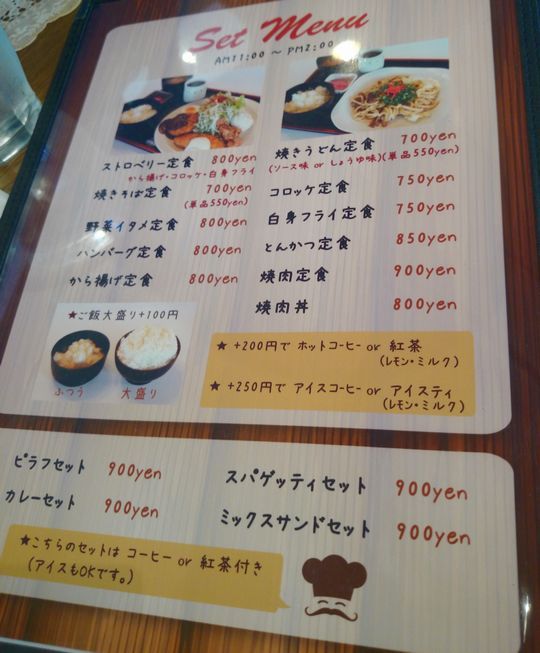 Set Menu
AM11:00 ～ PM2:00
ストロベリー定食 800yen
から揚げ・コロッケ・白身フライ
焼きそば定食 700yen
(単品550yen)
野菜イタメ定食 800yen
ハンバーグ定食 800yen
から揚げ定食 800yen
★ご飯大盛り+100円
ふつう 大盛り
焼きうどん定食 700yen
(ソース味 or しょうゆ味)(単品550yen)
コロッケ定食 750yen
白身フライ定食 750yen
とんかつ定食 850yen
焼肉定食 900yen
焼肉丼 800yen
★ +200円で ホットコーヒー or 紅茶
(レモン・ミルク)
★ +250円で アイスコーヒー or アイスティ
(レモン・ミルク)
ピラフセット 900yen
カレーセット 900yen
スパゲッティセット 900yen
ミックスサンドセット 900yen
★こちらのセットは コーヒー or 紅茶付き
(アイスもOKです。)